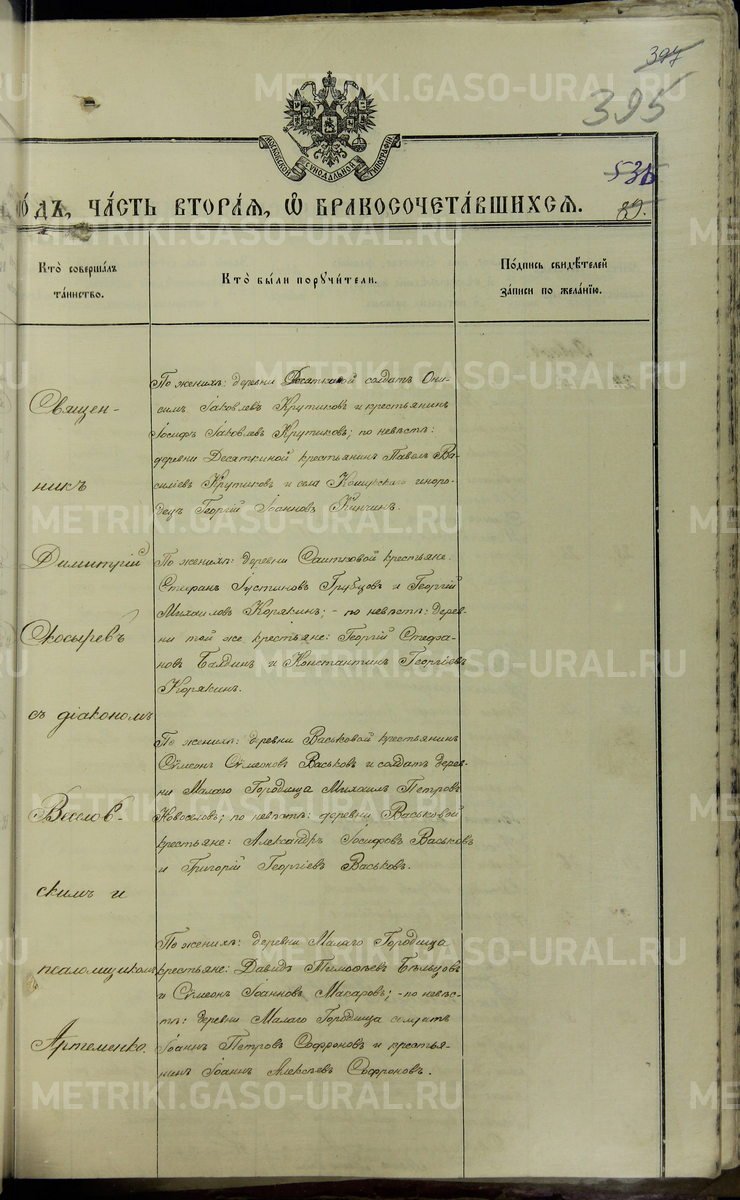 397
395
МОСКОВСКОЙ СѴНОДАЛЬНОЙ ТИПОГРАФІИ
535
89.
ОДЪ, ЧАСТЬ ВТОРАЯ, Ѡ БРАКОСОЧЕТАВШИХСЯ.
Кто совершалъ
таинство.
Кто были поручители.
Подпись свидѣтелей
записи по желанію.
Священ-
никъ
Димитрій
Косыревъ
съ діакономъ
Веселов-
скимъ и
псаломщикомъ
Артеменко.
По женихѣ: деревни Десяткиной солдатъ Они-
симъ Іаковлевъ Крутиковъ и крестьянинъ
Іосифъ Іаковлевъ Крутиковъ; по невѣстѣ:
деревни Десяткиной крестьянинъ Павелъ Ва-
силіевъ Крутиковъ и села иноро-
децъ Георгій Іоанновъ Кинчинъ.
По женихѣ: деревни Саитковой крестьяне:
Стефанъ Іустиновъ Грубцовъ и Георгій
Михаиловъ Корякинъ; - по невѣстѣ: дерев-
ни той же крестьяне: Георгій Стефа-
новъ Балдинъ и Константинъ Георгіевъ
Корякинъ.
По женихѣ: деревни Васьковой крестьянинъ
Сѵмеонъ Сѵмеоновъ Васьковъ и солдатъ дерев-
ни Малаго Городища Михаилъ Петровъ
Новоселовъ; по невѣстѣ: деревни Васьковой
крестьяне: Александръ Іосифовъ Васьковъ
и Григорій Георгіевъ Васьковъ.
По женихѣ: деревни Малаго Городища
крестьяне: Давидъ Тимоѳеевъ Бѣльцовъ
и Сѵмеонъ Іоанновъ Макаровъ; - по невѣс-
тѣ: деревни Малаго Городища солдатъ
Іоаннъ Петровъ Софроновъ и крестья-
нинъ Іоаннъ Алексѣевъ Софроновъ.
METRIKI.GASO-URAL.RU